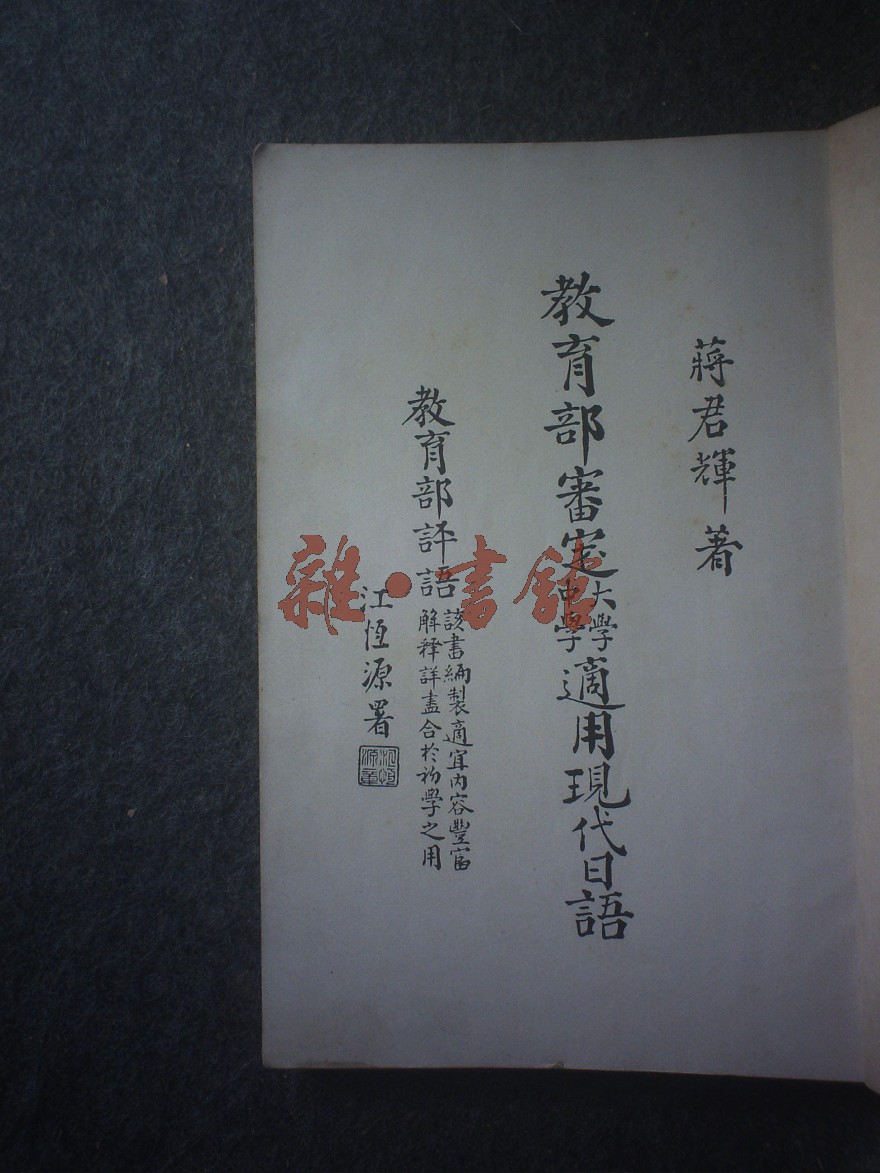 蔣君輝著
教育部審定大學中學適用現代日語
教育部評語
該書編製適宜內容豐富
解釋詳盡合於初學之用
江恆源署
雜·書館